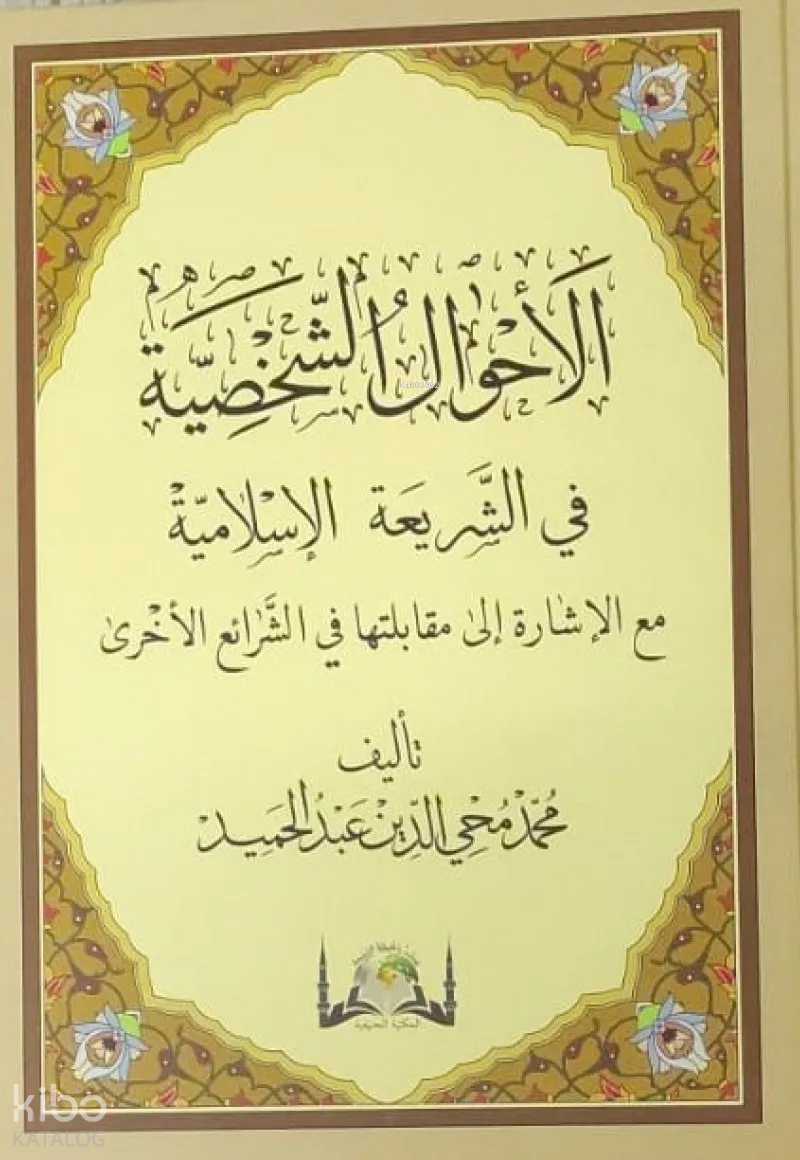 الأَحْوَالُ الشَّخْصِيَّة
في الشَّرِيعَة الإِسْلَامِيَّة
مع الإشارة إلى مقابلتها في الشَّرائع الأخْرى
تأليف
مُحَمَّد مُحْيِي الدِّيْن عَبْدُ الحَمِيد
kibo
KATALOG